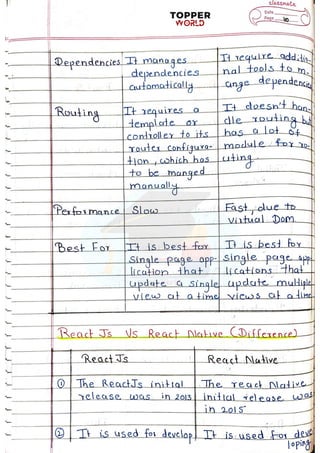 classmate
TOPPER
WORLD
Date
Page 10
Dependencies It manages It require additio-
dependencies nal tools to m-
automatically. ange dependencies
Routing It requires a It doesn't han-
template or dle routing but
controller to its has a lot of
router configura- module for ro-
tion, which has uting.
to be manged
manually.
Performance Slow Fast, due to
virtual Dom.
Best For It is best for It is best for
Single page app- single page app-
lication that lications that
update a single update multiple
view at a time views at a time
React Js Vs React Native (Difference)
React Js React Native
① The ReactJs initial The react Native
release was in 2013 initial release was
in 2015
② It is used for develop It is used for deve
loping